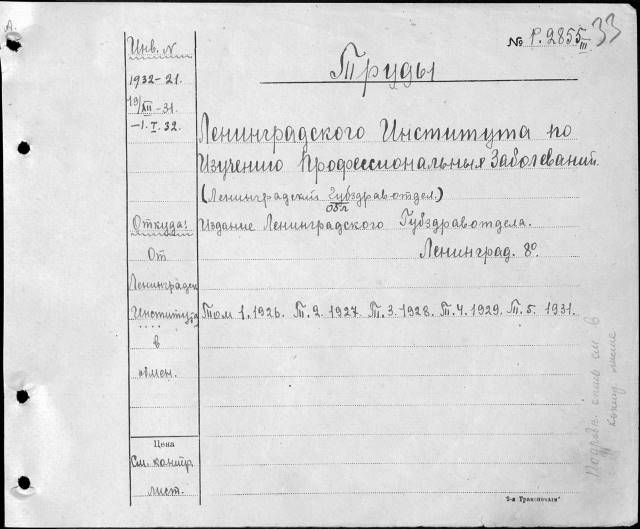 А.
№ Р.2855/III 33
Инв. N
Труды
1932-21.
19/XII-31.
-1.I.32.
Ленинградского Института по
Изучению Профессиональных Заболеваний.
(Ленинградский Губздравотдел.)
обл
Откуда:
Издание Ленинградского Губздравотдела.
От
Ленинград. 8º.
Ленинградск
Института
Том 1.1926. Т.2.1927. Т.3.1928. Т.4.1929. Т.5. 1931.
в
обмен.
Цена
См. контр.
лист.
2-я Транспечать
Подробн. опись см. в